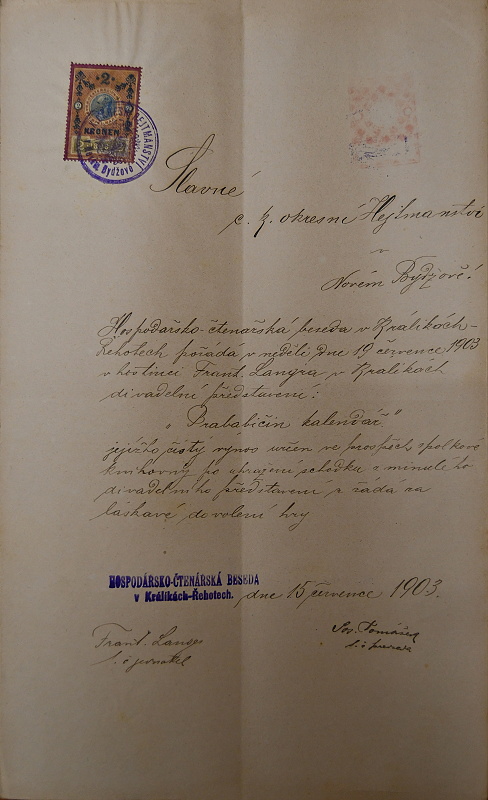 2
KRONEN
HEJTMANSTVÍ
Bydžově
Slavné
c. k. okresní Hejtmanství
v
Novém Bydžově!
Hospodářsko-čtenářská beseda v Králikách-
Řehotech pořádá v neděli dne 19 července 1903
v hostinci Frant. Langra v Králikách
divadelní představení:
„Prababiččin kalendář"
jejížto čistý výnos určen ve prospěch spolkové
knihovny po uhražení schodku z minulého
divadelního představení a žádá za
láskavé dovolení hry
HOSPODÁRSKO-ČTENÁRSKÁ BESEDA
v Králikách-Řehotech.
dne 15 července 1903.
Frant. Langr
t. č. jednatel
Jos. Tomášek
t. č.